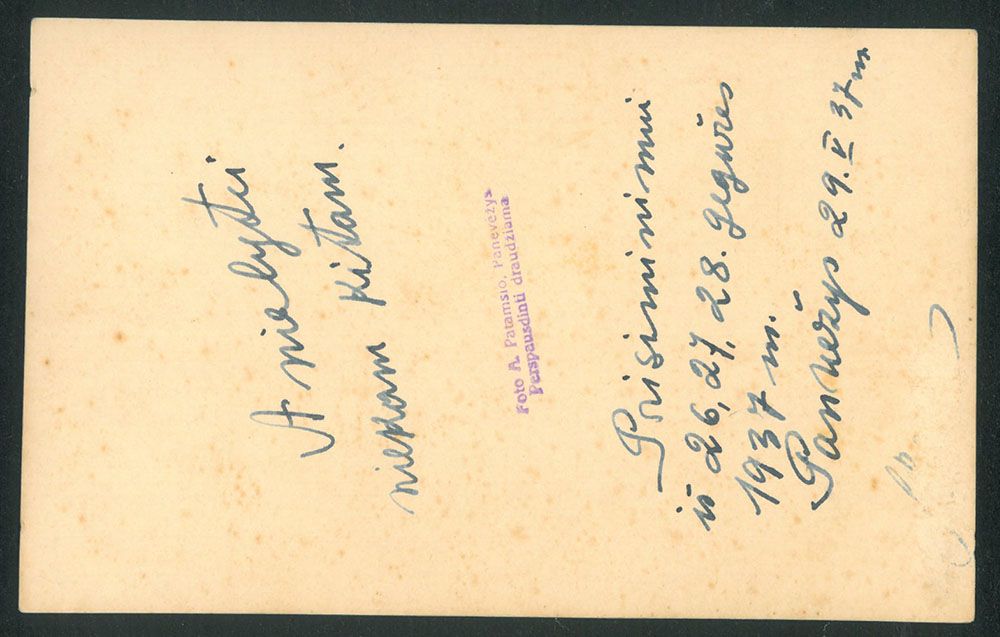 Anielytei
niekam kitam.
Foto A. Patamsio, Panevėžys
Perspausdinti draudžiama
Prisiminimui
iš 26, 27, 28. gegužės
1937 m.
Panevėžys 29. V 37 m